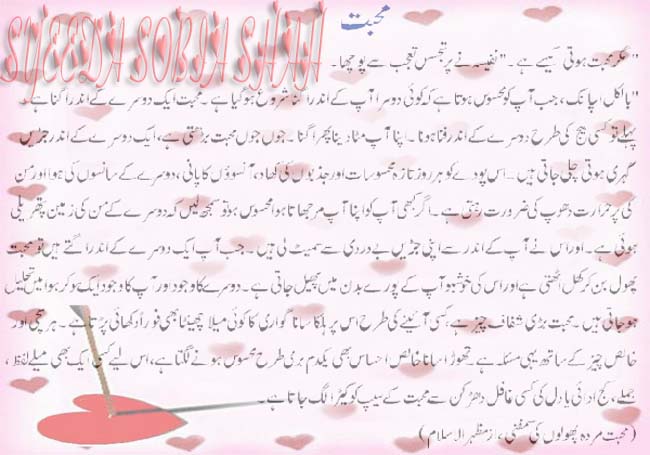 SYEEDA SOBIA SHAH
محبت
"مگر محبت ہوتی کیسے ہے۔" نفیسہ نے پر تجسس تعجب سے پوچھا۔
"بالکل اچانک، جب آپ کو محسوس ہوتا ہے کہ کوئی دوسرا آپ کے اندر اگنا شروع ہو گیا ہے۔ محبت ایک دوسرے کے اندر اگنا ہے۔
پہلے تو کسی بیج کی طرح دوسرے کے اندر فنا ہونا۔ اپنا آپ مٹا دینا پھر اگنا۔ جوں جوں محبت بڑھتی ہے، ایک دوسرے کے اندر جڑیں
گہری ہوتی چلی جاتی ہیں۔ اس پودے کو ہر روز تازہ محسوسات اور جذبوں کی کھاد، آنسوؤں کا پانی، دوسرے کے سانسوں کی ہوا اور من
کی پر حرارت دھوپ کی ضرورت رہتی ہے۔ اگر کبھی آپ کو اپنا آپ مرجھاتا ہوا محسوس ہو تو سمجھ لیں کہ دوسرے کے من کی زمین پتھریلی
ہوئی ہے۔ اور اس نے آپ کے اندر سے اپنی جڑیں بے دردی سے سمیٹ لی ہیں۔ جب آپ ایک دوسرے کے اندر اگتے ہیں تو محبت
پھول بن کر کھل اٹھتی ہے اور اس کی خوشبو آپ کے پورے بدن میں پھیل جاتی ہے۔ دوسرے کا وجود اور آپ کا وجود ایک ہو کر ہوا میں تحلیل
ہو جاتی ہیں۔ محبت بڑی شفاف چیز ہے، کسی آئینے کی طرح اس پر ہلکا سا ناگواری کا کوئی میلا چھینٹا بھی فوراً دکھائی پڑتا ہے۔ ہر سچی اور
خالص چیز کے ساتھ یہی مسئلہ ہے۔ تھوڑا سا ناخالص احساس بھی یکدم بری طرح محسوس ہونے لگتا ہے، اس لیے کسی ایک بھی میلے لفظ،
جملے، کج ادائی یا دل کی کسی غافل دھڑکن سے محبت کے سیپ کو کیڑا لگ جاتا ہے۔
(محبت مردہ پھولوں کی سمفنی، از مظہر الاسلام)